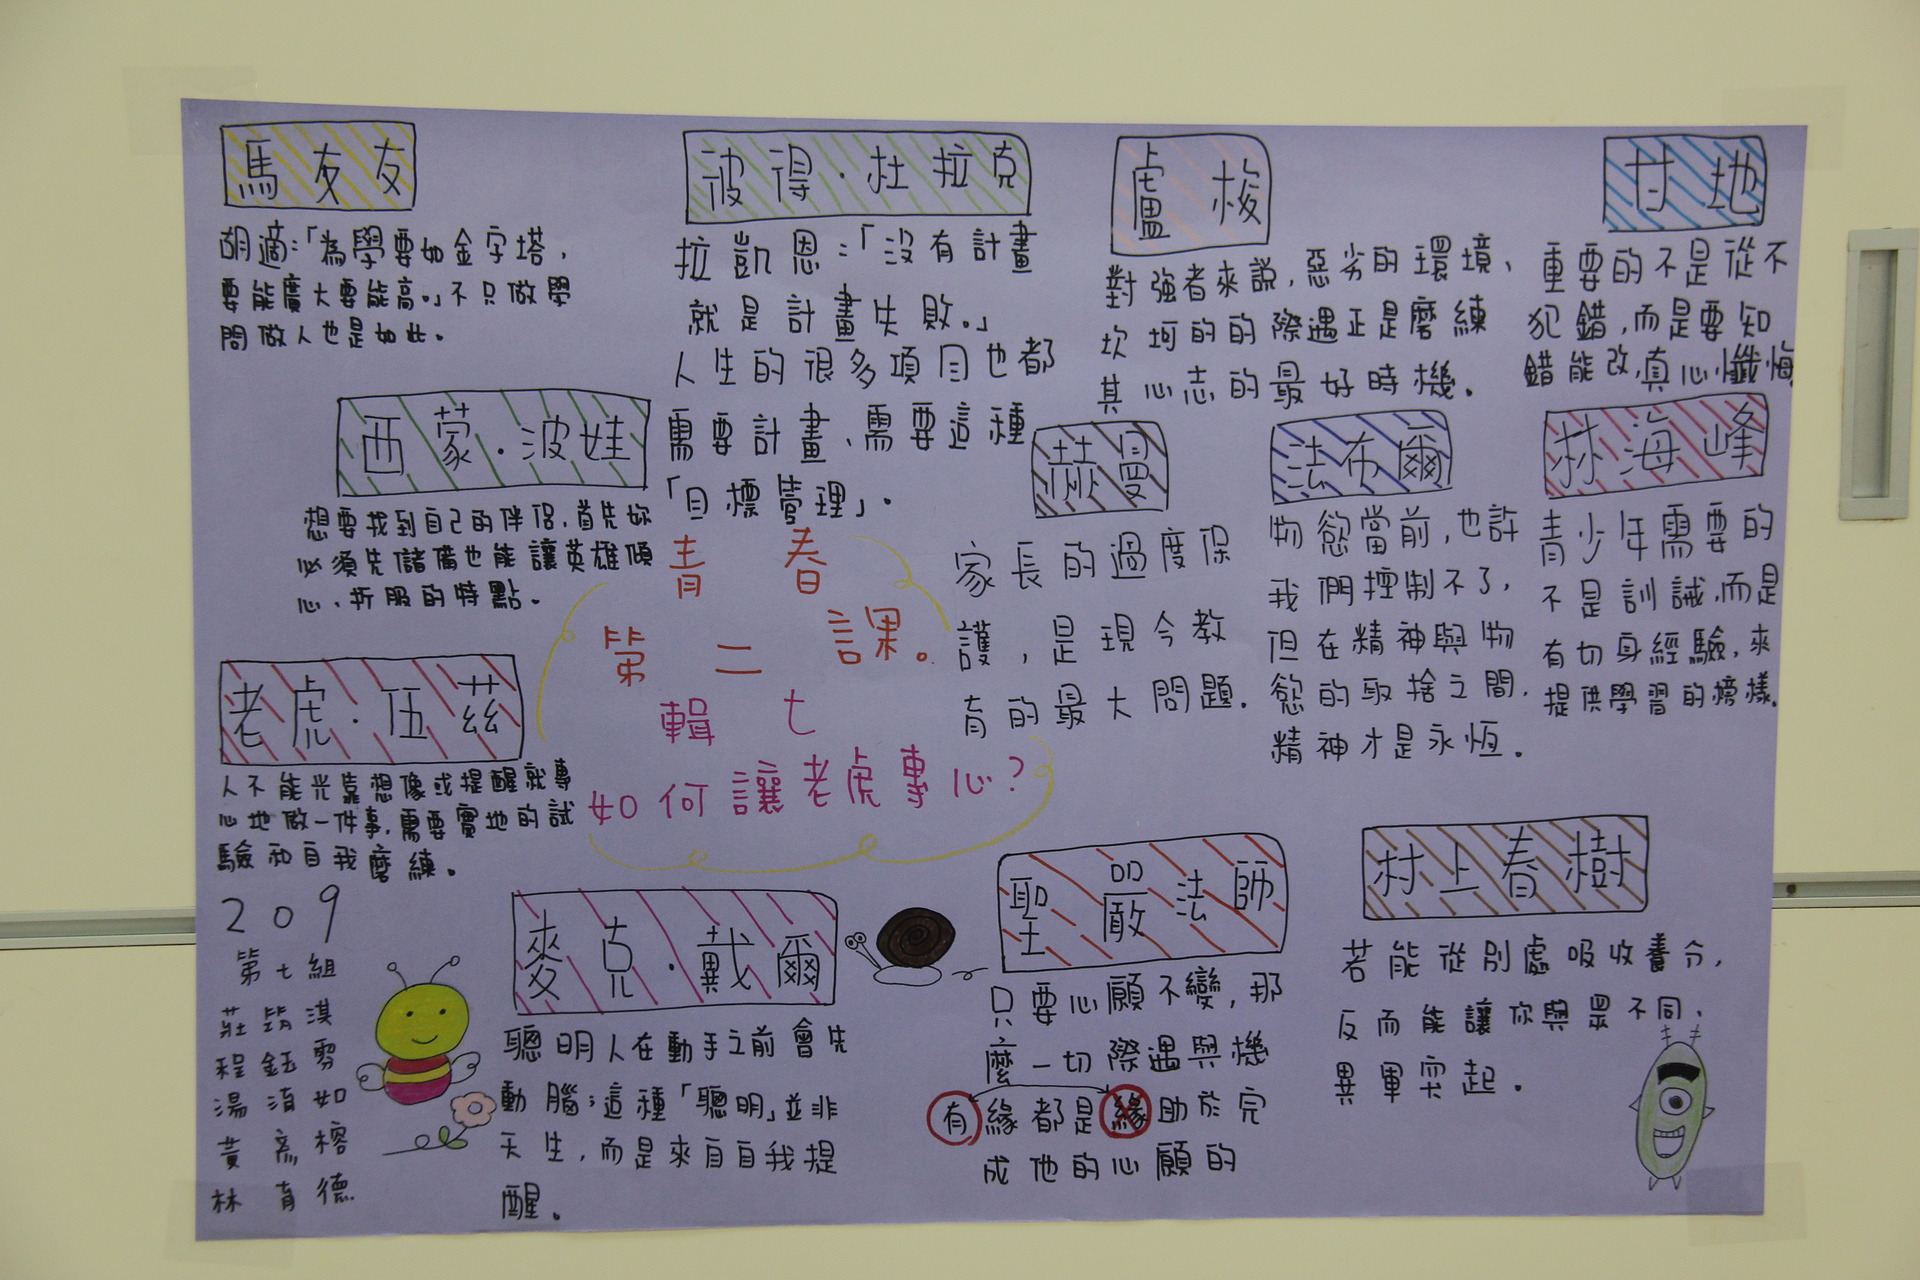 馬友友
胡適:「為學要如金字塔,
要能廣大要能高。」不只做學
問做人也是如此。
彼得·杜拉克
拉凱恩:「沒有計畫
就是計畫失敗。」
人生的很多項目也都
需要計畫、需要這種
「目標管理」.
盧梭
對強者來說,惡劣的環境、
坎坷的的際遇正是磨練
其心志的最好時機。
甘地
重要的不是從不
犯錯,而是要知
錯能改,真心懺悔
西蒙·波娃
想要找到自己的伴侶,首先妳
必須先儲備也能讓英雄傾
心、折服的特點。
赫曼
家長的過度保
護,是現今教
育的最大問題.
法布爾
物慾當前,也許
我們控制不了,
但在精神與物
慾的取捨之間,
精神才是永恆。
林海峰
青少年需要的
不是訓誡,而是
有切身經驗,來
提供學習的榜樣.
青春
第二課。
輯七
如何讓老虎專心?
老虎·伍茲
人不能光靠想像或提醒就專
心地做一件事,需要實地的試
驗和自我磨練。
209
第七組
莊筑淇
程鈺雰
湯淯如
黃榕
林育德
麥克·戴爾
聰明人在動手之前會先
動腦;這種「聰明」並非
天生,而是來自自我提
醒。
聖嚴法師
只要心願不變,那
麼一切際遇與機
有緣都是緣助於完
成他的心願的
村上春樹
若能從別處吸收養分,
反而能讓你與眾不同、
異軍突起.